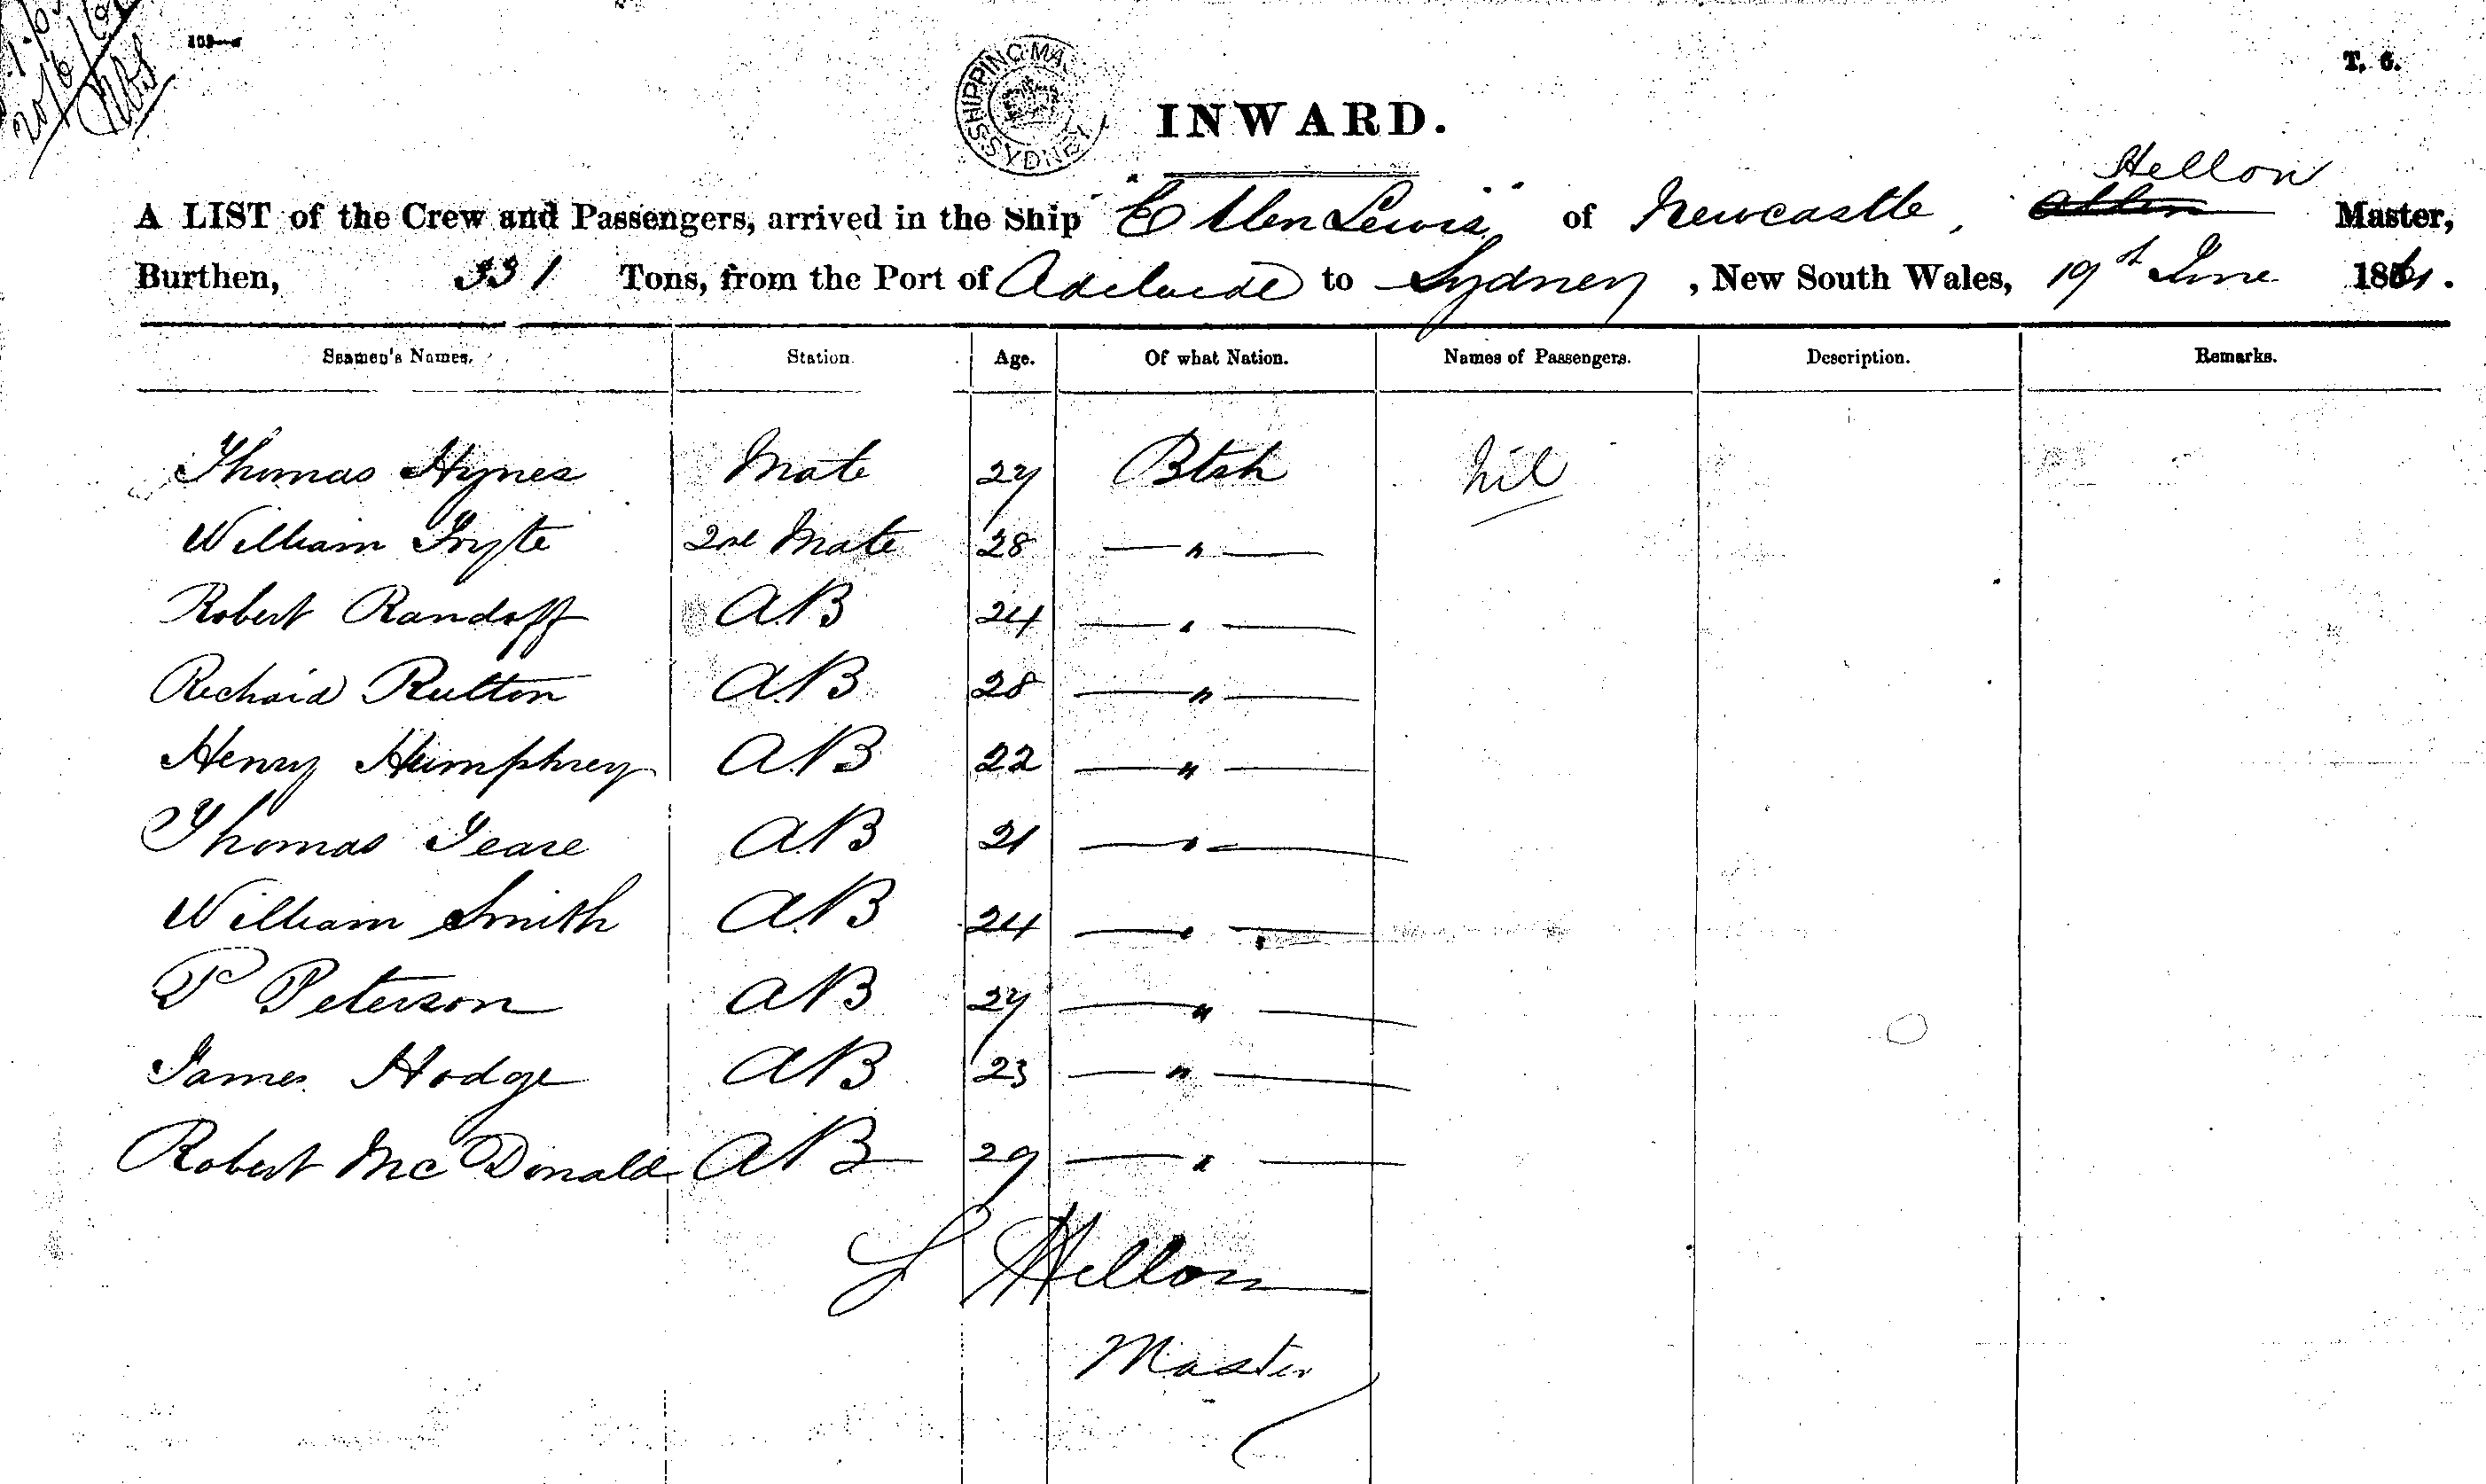 20/6/61
T. 6.
SHIPPING MA
SYDNEY
INWARD.
Hellon
A LIST of the Crew and Passengers, arrived in the Ship "Ellen Lewis" of Newcastle, Master,
Burthen, 331 Tons, from the Port of Adelaide to Sydney, New South Wales, 19th June 1861.
Seamen's Names. Station Age. Of what Nation. Names of Passengers. Description. Remarks.
Thomas Hynes Mate 27 Btsh Nil
William Fryte 2nd Mate 28 — " —
Robert Randoff AB 24 — " —
Richard Rutton AB 28 — " —
Henry Humphrey AB 22 — " —
Thomas Teare AB 21 — " —
William Smith AB 24 — " —
P Peterson AB 27 — " —
James Hodge AB 23 — " —
Robert McDonald AB 29 — " —
Hellon
Master